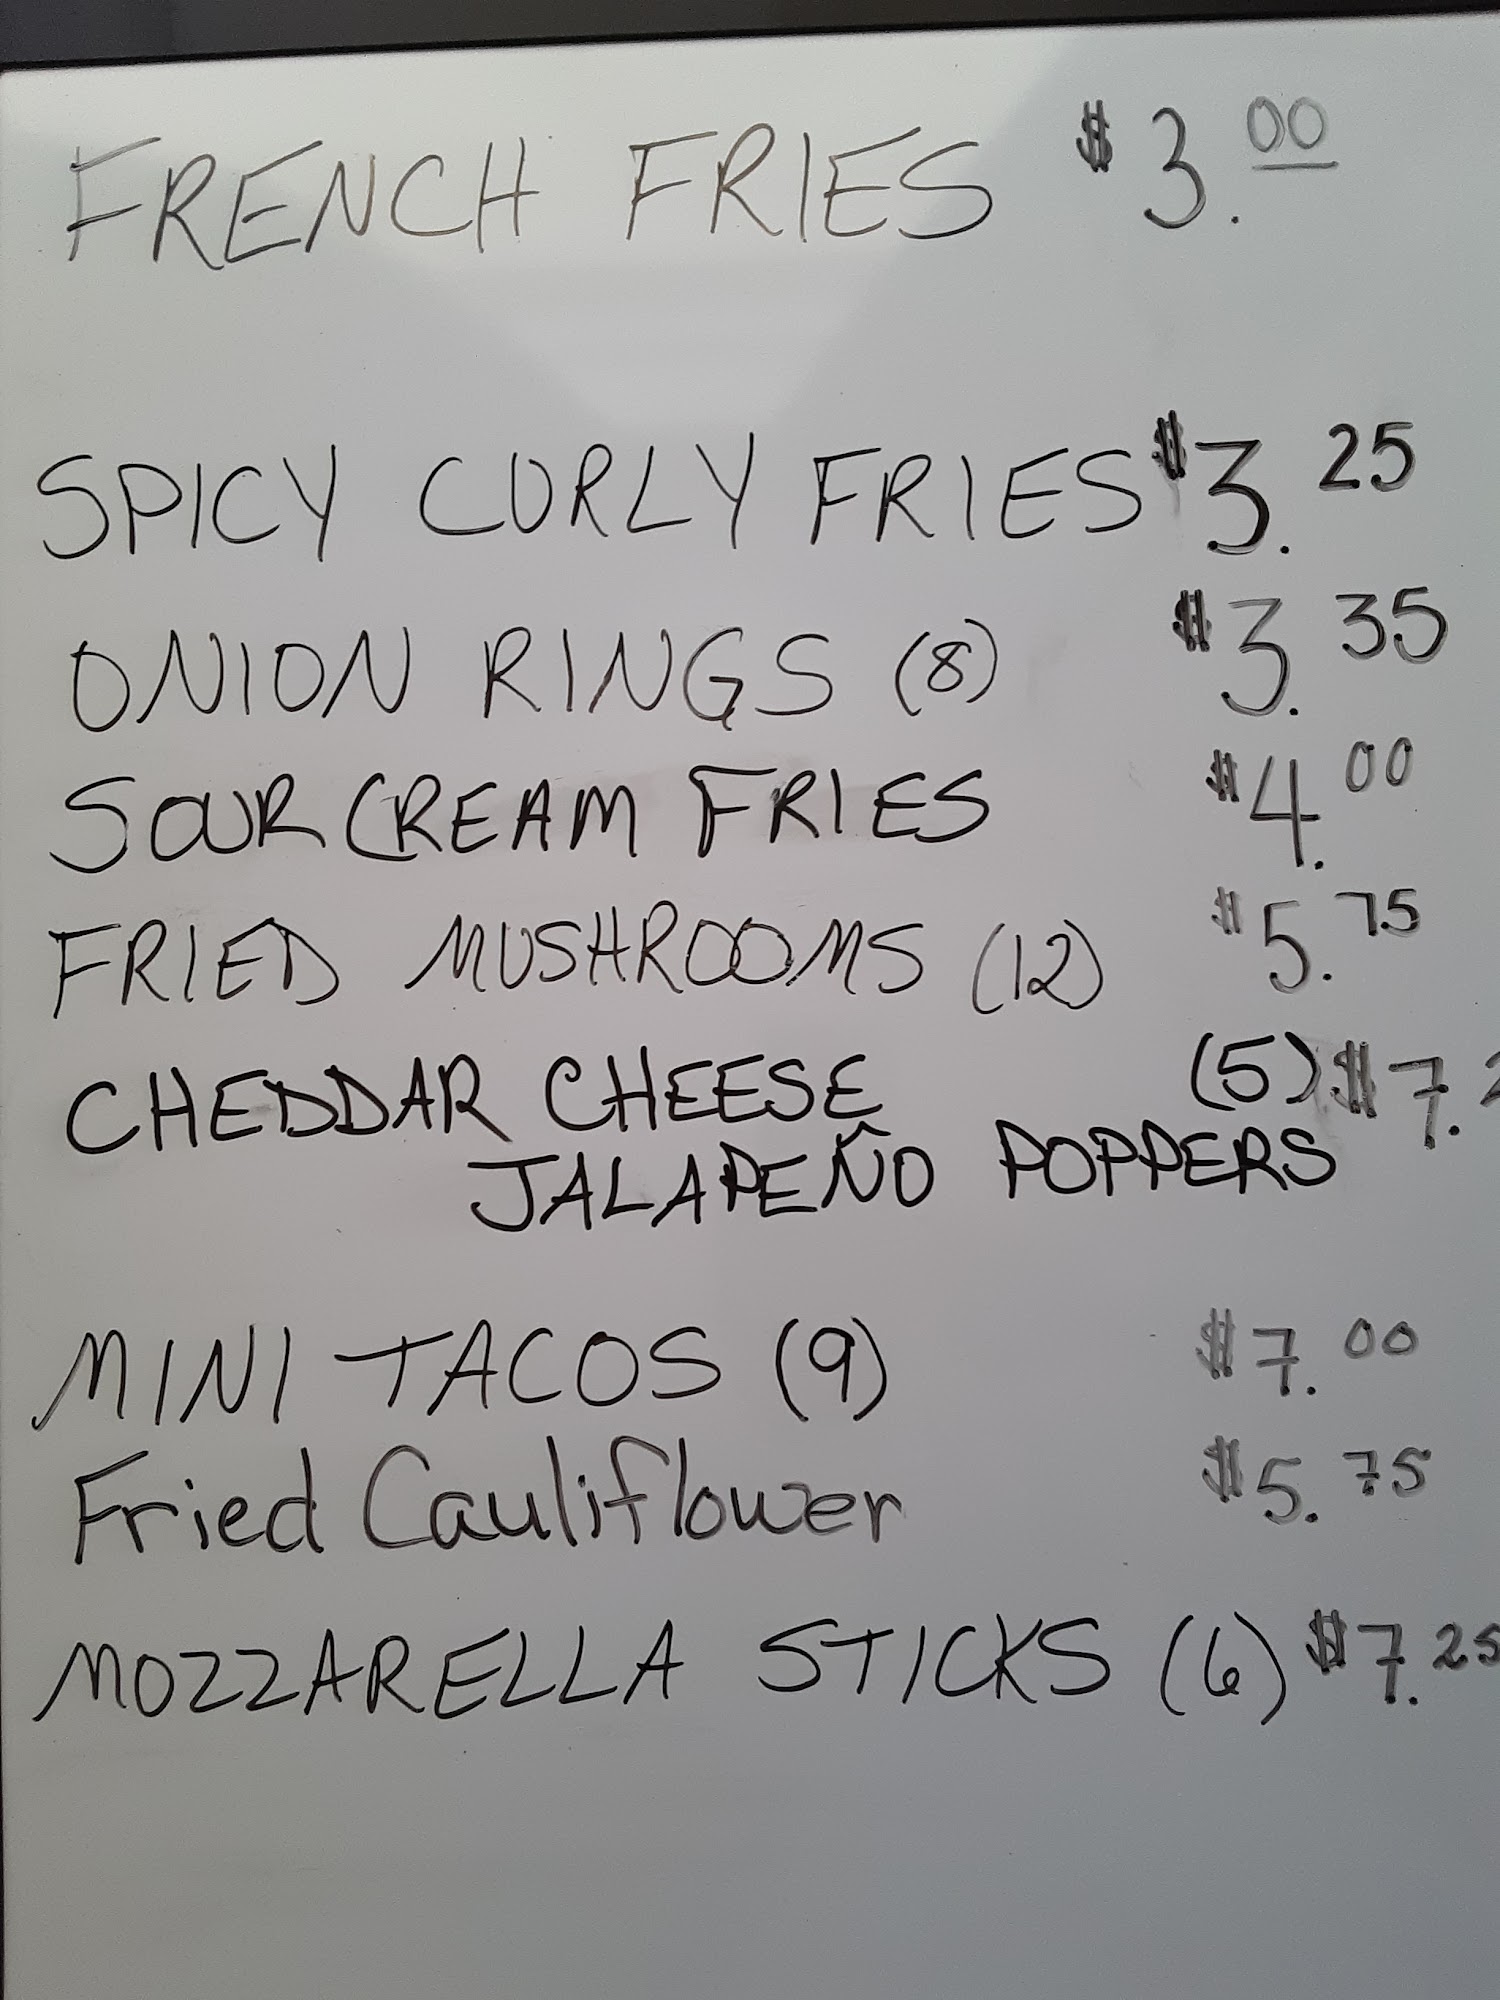 FRENCH FRIES $3.00
SPICY CURLY FRIES $3.25
ONION RINGS (8) $3.35
SOUR CREAM FRIES $4.00
FRIED MUSHROOMS (12) $5.75
CHEDDAR CHEESE (5) $7.
JALAPEÑO POPPERS
MINI TACOS (9) $7.00
Fried Cauliflower $5.75
MOZZARELLA STICKS (6) $7.25